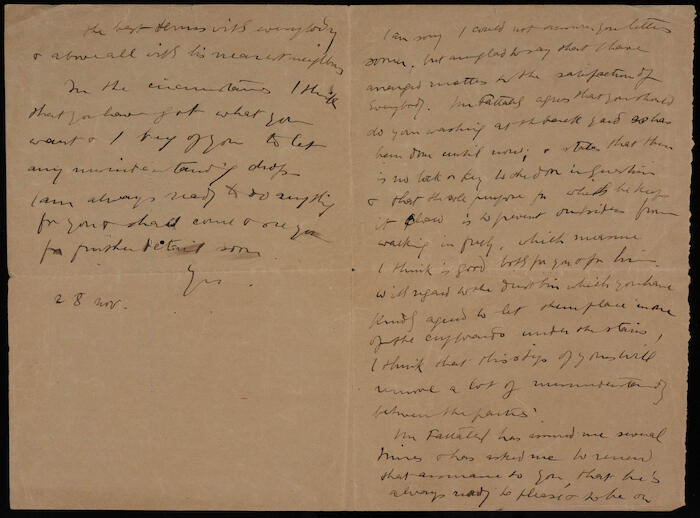 I am sorry I could not answer your letter
sooner, but am glad to say that I have
arranged matters to the satisfaction of
Everybody. Mr Fattah agrees that you should
do your washing at the back yard as has
been done until now; & states that there
is no lock or key to the door in question
& that the sole purpose for which he keeps
it is to prevent outsiders from
walking in freely, which measure
I think is good both for you & for him.
With regard to the dust bin which you have
kindly agreed to let them place in one
of the cupboards under the stairs,
I think that this step of yours will
remove a lot of misunderstanding
between the parties.
Mr Fattah has assured me several
times & has asked me to renew
that assurance to you, that he is
always ready to please & to be on
the best terms with everybody
& above all with his nearest neighbours
In the circumstances I think
that you have got what you
want & I beg of you to let
any misunderstanding drop.
I am always ready to do anything
for you & shall come & see you
for further details soon.
Yrs.
28 Nov.